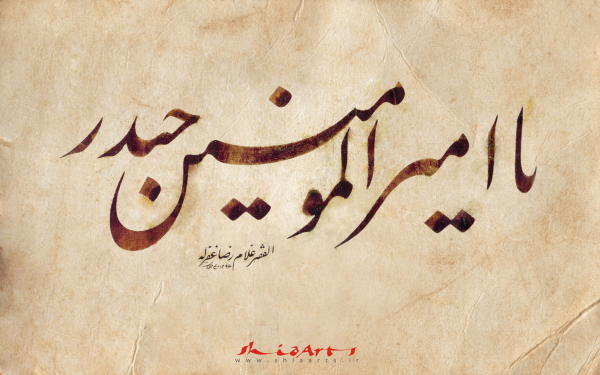 یا امیر المومنین حیدر
الفقیر غلام رضا غفرله
shiaArts
www.shiaarts.ir